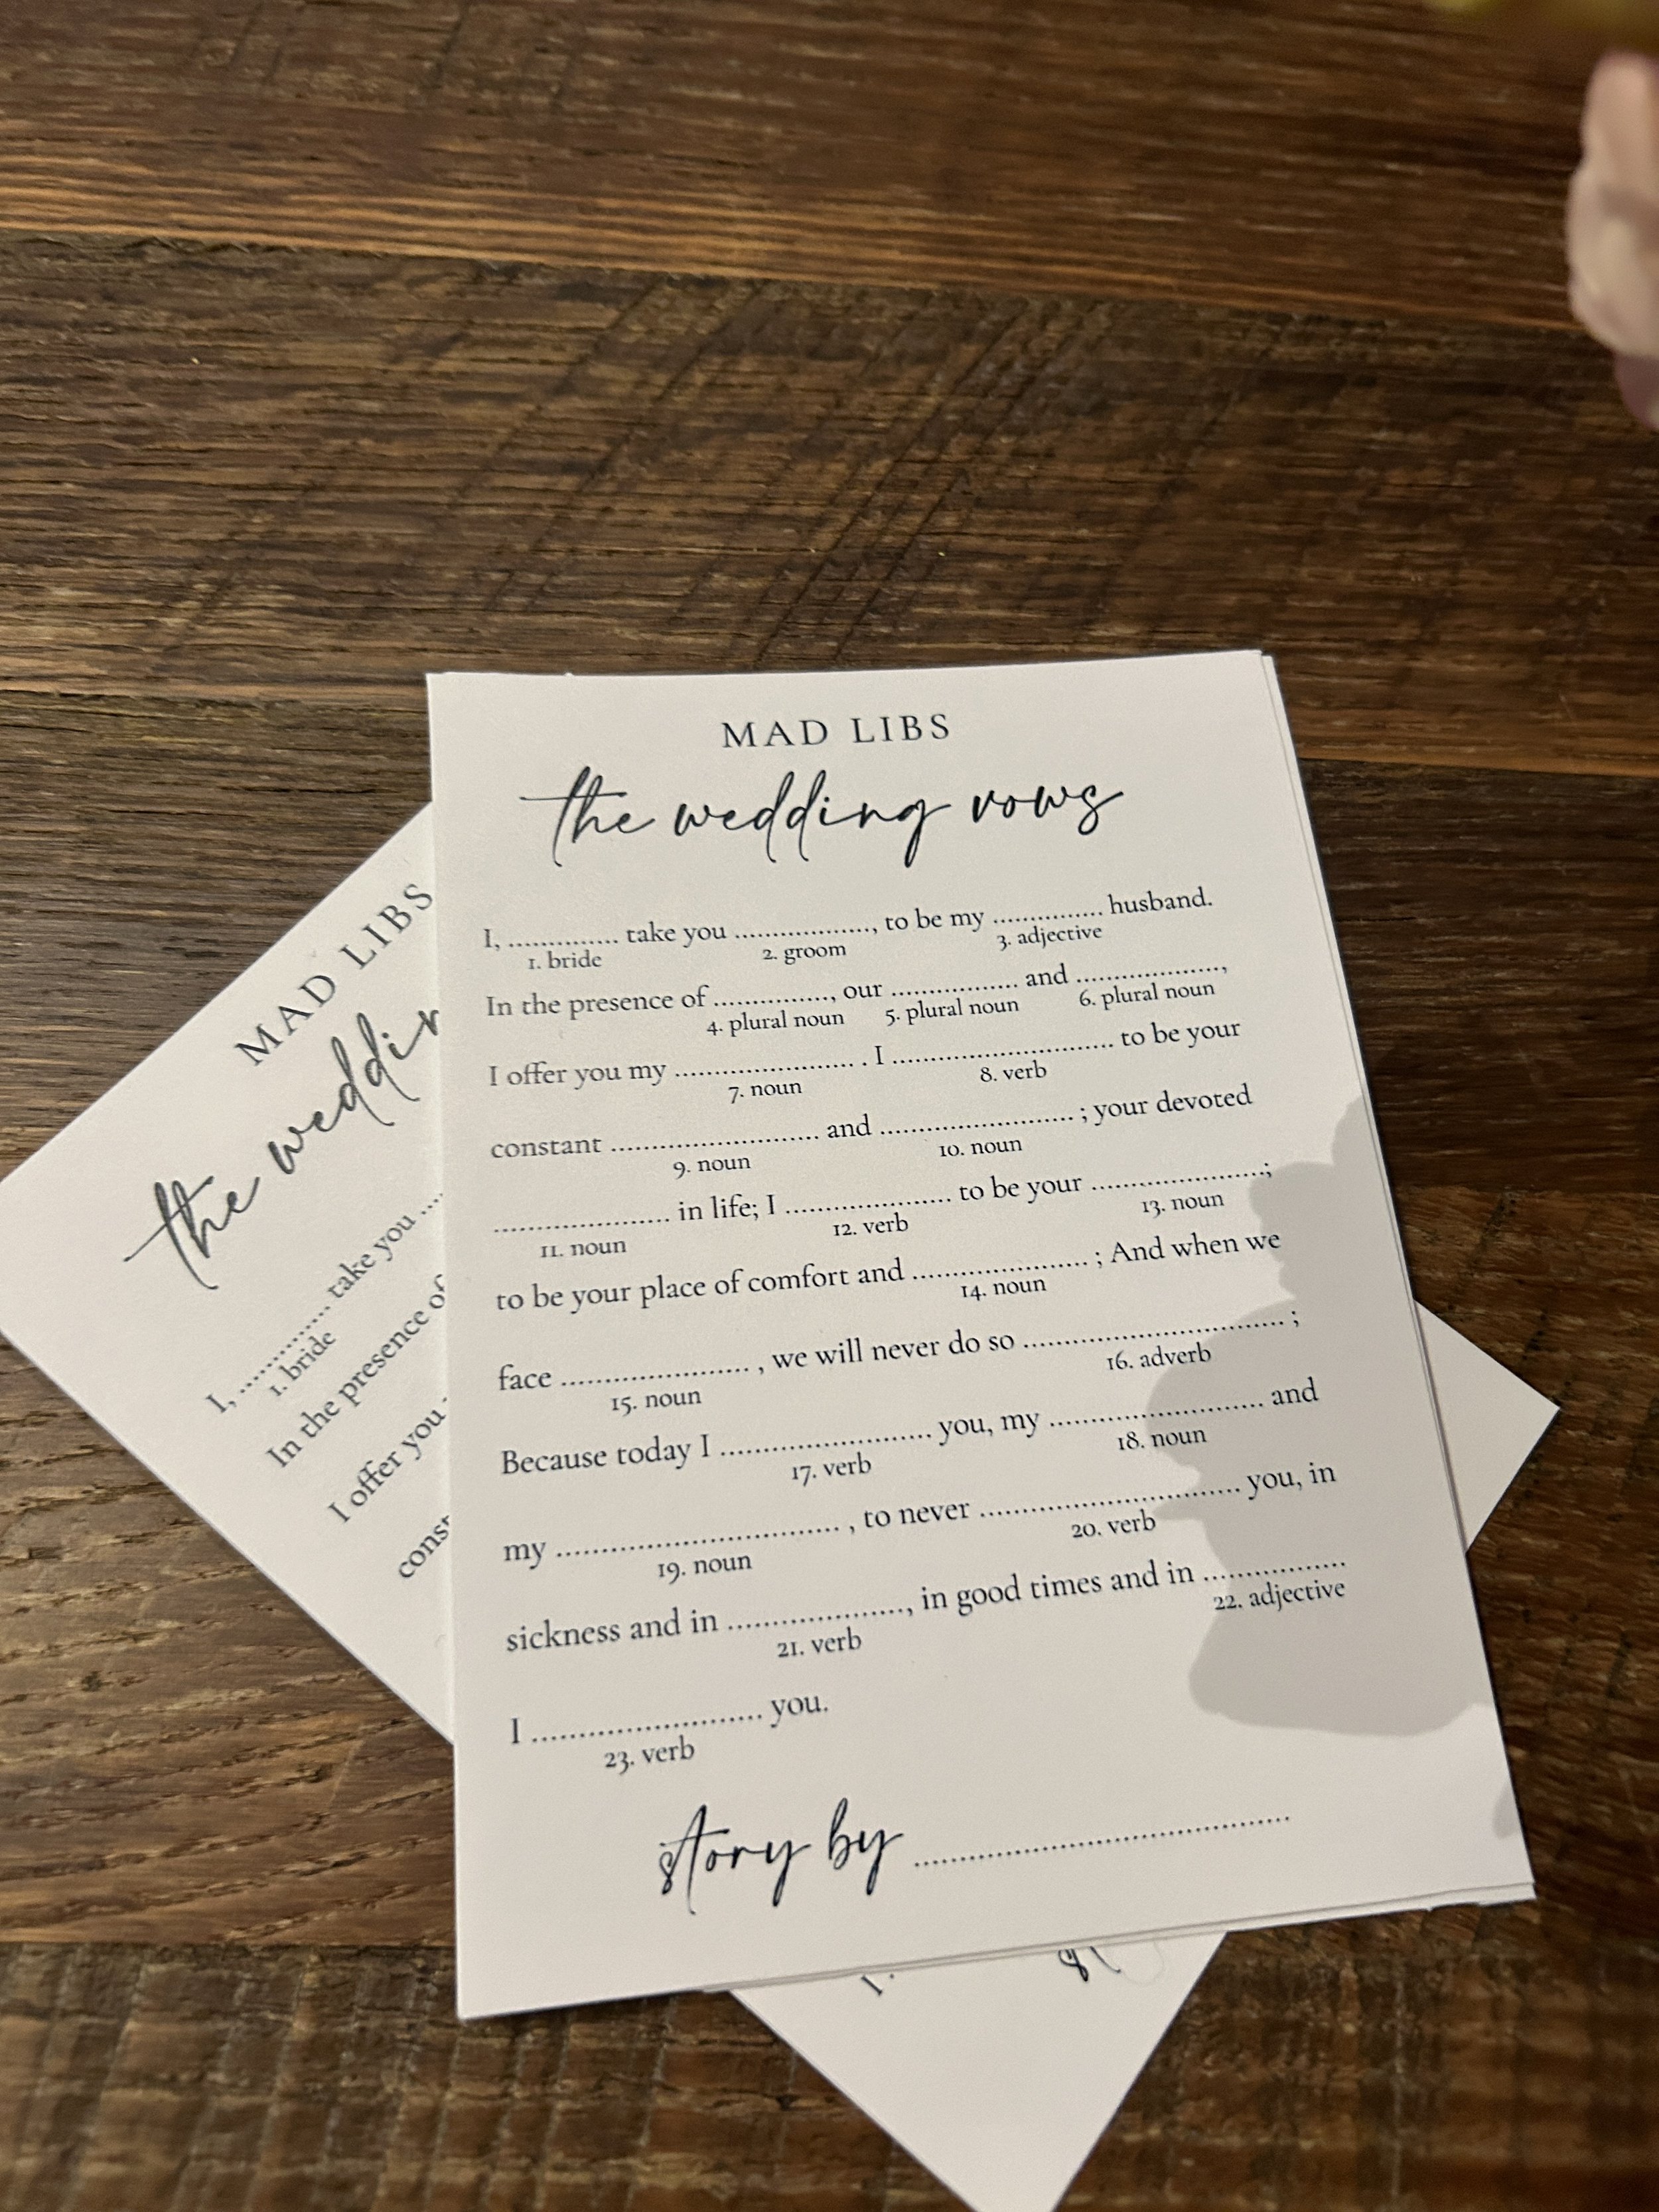 MAD LIBS
the wedding vows
I, .............. take you ..................., to be my ............... husband.
1. bride 2. groom 3. adjective
In the presence of ................, our ................. and ....................,
4. plural noun 5. plural noun 6. plural noun
I offer you my ........................ . I .............................. to be your
7. noun 8. verb
constant ............................ and .......................... ; your devoted
9. noun 10. noun
........................ in life; I ...................... to be your .......................;
11. noun 12. verb 13. noun
to be your place of comfort and ....................... ; And when we
14. noun
face ......................... , we will never do so .................................. ;
15. noun 16. adverb
Because today I ............................ you, my ............................ and
17. verb 18. noun
my ..................................... , to never .................................. you, in
19. noun 20. verb
sickness and in ......................., in good times and in ...................
21. verb 22. adjective
I .............................. you.
23. verb
story by ................................................
MAD LIBS
the
I, .............. take you ....
1. bride
In the presence of
I offer you